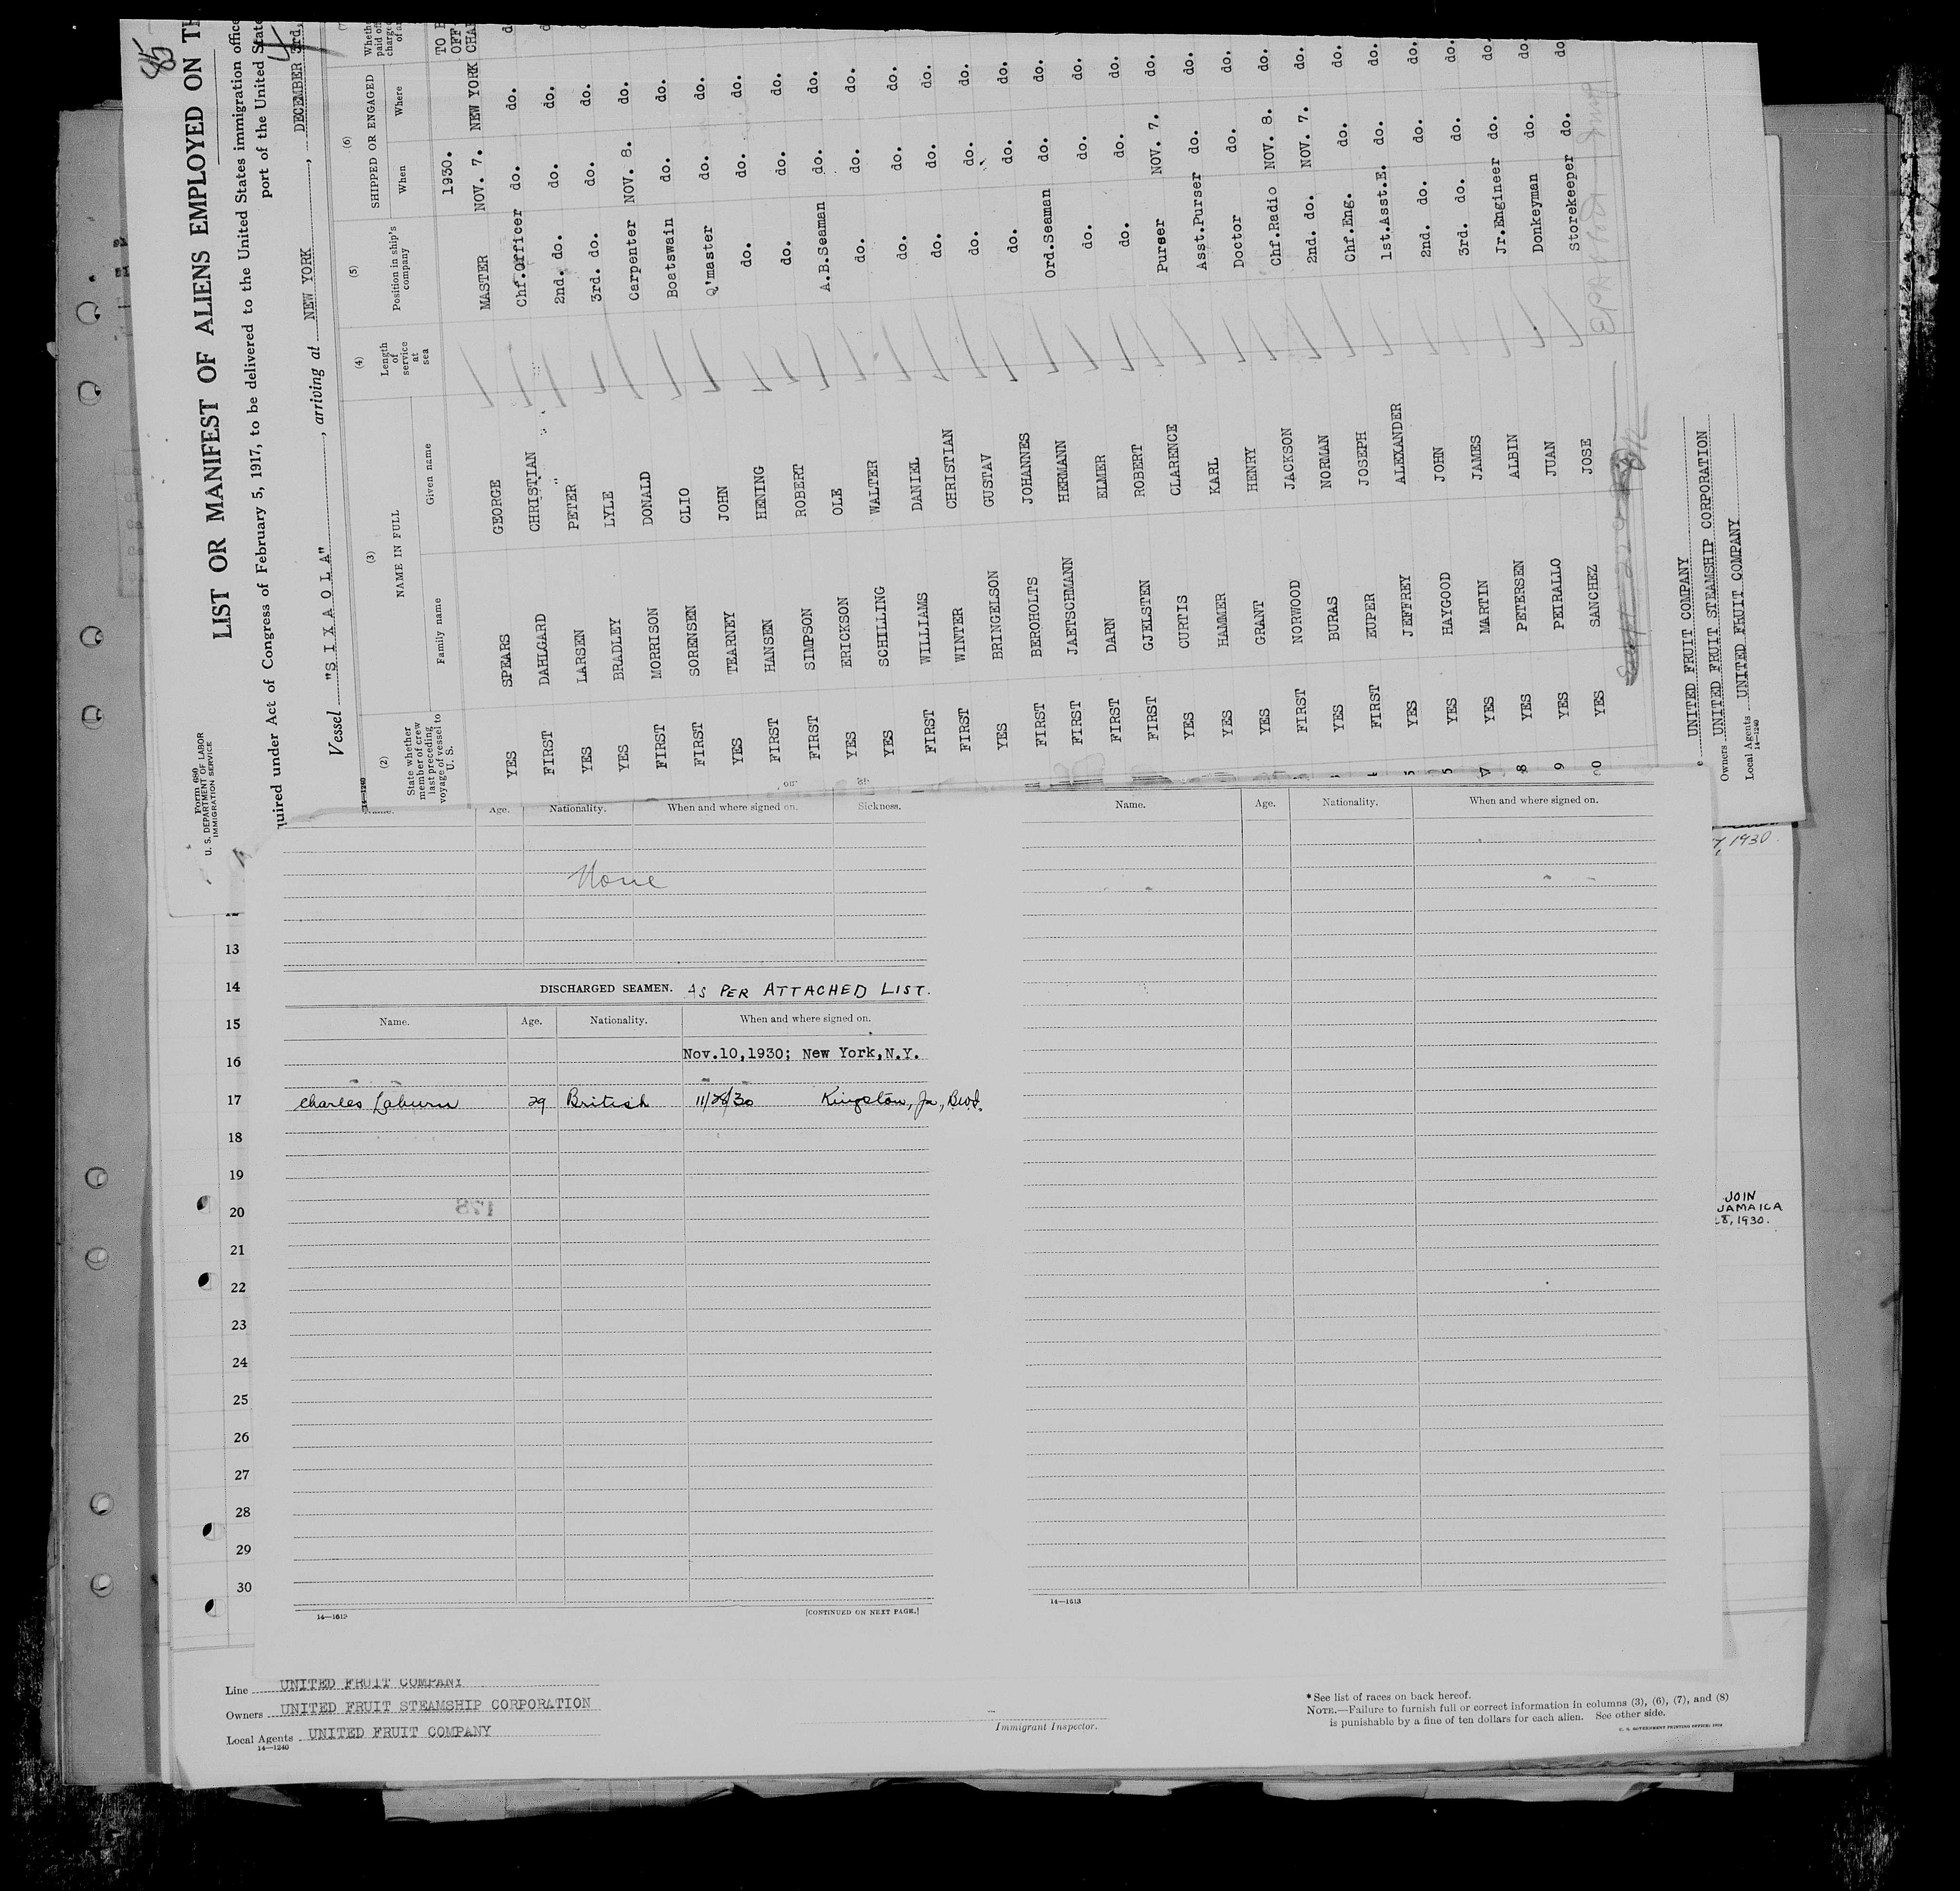 85
Form 680
U. S. DEPARTMENT OF LABOR
IMMIGRATION SERVICE
LIST OR MANIFEST OF ALIENS EMPLOYED ON TH
quired under Act of Congress of February 5, 1917, to be delivered to the United States immigration office
port of the United State
Vessel "S I X A O L A", arriving at NEW YORK, DECEMBER 3rd.
(2) (3) (4) (5) (6)
State whether member of crew last preceding voyage of vessel to U. S.
NAME IN FULL
Family name Given name
Length of service at sea
Position in ship's company
SHIPPED OR ENGAGED
When Where
1930.
YES SPEARS GEORGE MASTER NOV. 7. NEW YORK
FIRST DAHLGARD CHRISTIAN Chf.Officer do. do.
YES LARSEN PETER 2nd. do. do. do.
YES BRADLEY LYLE 3rd. do. do. do.
FIRST MORRISON DONALD Carpenter NOV. 8. do. do.
FIRST SORENSEN CLIO Boatswain do. do. do.
YES TEARNEY JOHN Q'master do. do. do.
FIRST HANSEN HENING do. do. do. do.
FIRST SIMPSON ROBERT do. do. do. do.
YES ERICKSON OLE A.B.Seaman do. do. do.
YES SCHILLING WALTER do. do. do. do.
FIRST WILLIAMS DANIEL do. do. do. do.
FIRST WINTER CHRISTIAN do. do. do. do.
YES BRINGELSON GUSTAV do. do. do. do.
FIRST BEROHOLTS JOHANNES do. do. do.
FIRST JAETSCHMANN HERMANN Ord.Seaman do. do.
FIRST DARN ELMER do. do. do.
FIRST GJELSTEN ROBERT do. do. do.
YES CURTIS CLARENCE Purser NOV. 7. do.
YES HAMMER KARL Asst.Purser do. do.
YES GRANT HENRY Doctor do. do.
FIRST NORWOOD JACKSON Chf.Radio NOV. 8. do.
YES BURAS NORMAN 2nd. do. NOV. 7. do.
FIRST EUPER JOSEPH Chf.Eng. do. do.
YES JEFFREY ALEXANDER 1st.Asst.E. do. do.
YES HAYGOOD JOHN 2nd. do. do. do.
YES MARTIN JAMES 3rd. do. do. do.
YES PETERSEN ALBIN Jr.Engineer do. do.
YES PEIRALLO JUAN Donkeyman do. do.
YES SANCHEZ JOSE Storekeeper do. do.
UNITED FRUIT COMPANY
Owners UNITED FRUIT STEAMSHIP CORPORATION
Local Agents UNITED FRUIT COMPANY
14—1240
Name. Age. Nationality. When and where signed on. Sickness.
None
DISCHARGED SEAMEN. AS PER ATTACHED LIST.
Name. Age. Nationality. When and where signed on.
Nov.10,1930; New York,N.Y.
Charles Laburn 29 British 11/28/30 Kingston, Ja., B.W.I.
[CONTINUED ON NEXT PAGE.]
Name. Age. Nationality. When and where signed on.
14—1613
7, 1930
JOIN
JAMAICA
28, 1930.
13
14
15
16
17
18
19
20
21
22
23
24
25
26
27
28
29
30
Line UNITED FRUIT COMPANY
Owners UNITED FRUIT STEAMSHIP CORPORATION
Local Agents UNITED FRUIT COMPANY
14—1240
Immigrant Inspector.
*See list of races on back hereof.
NOTE.—Failure to furnish full or correct information in columns (3), (6), (7), and (8)
is punishable by a fine of ten dollars for each alien. See other side.
U. S. GOVERNMENT PRINTING OFFICE: